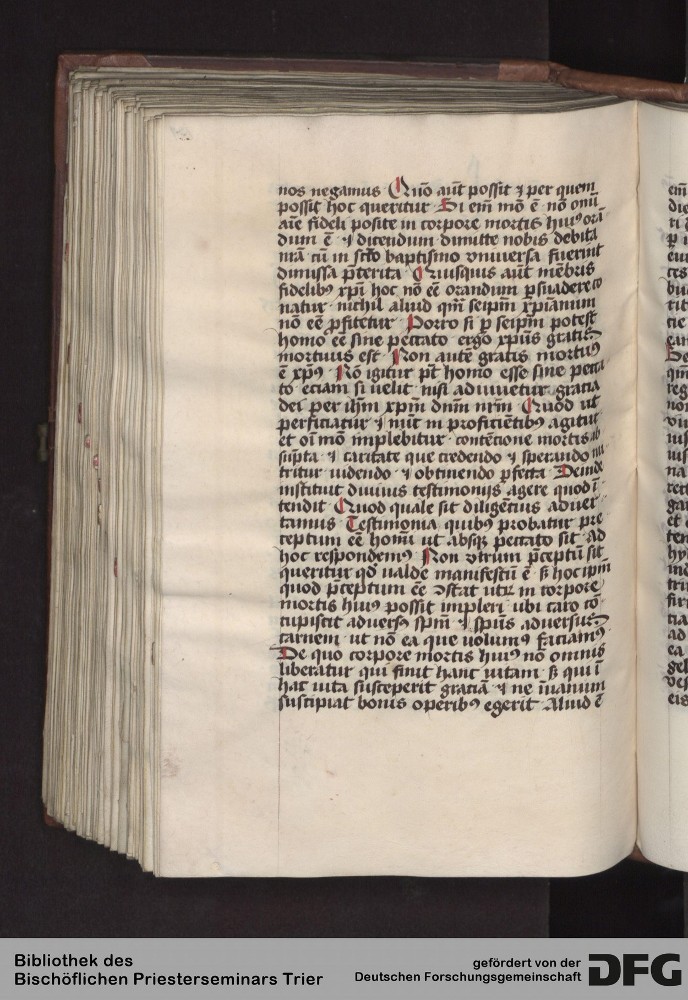 nos negamus Quō aūt possit ⁊ per quem
possit hoc queritur Si em̄ mō ē nō om̄i
aīe fideli posite in corpore mortis huiꝰ orā
dum ē ⁊ dicendum dimitte nobis debita
nrā cū in scō baptismo vniuersa fuerint
dimissa p̄terita Quisquis aūt mēbris
fidelibꝰ xp̄i hoc nō eē orandum ꝑsuadere co
natur nichil aliud qm̄ seip̄m xp̄ianum
nō eē ꝓfitetur Porro si ꝑ seip̄m potest
homo eē sine peccato ergo xp̄us gratis
mortuus est Non autē gratis mortuꝰ
ē xp̄ꝰ Nō igitur pt̄ homo esse sine pecca
to eciam si velit nisi adiuuetur gratia
dei per ih̄m xp̄m dn̄m nr̄m Quod ut
perficiatur ⁊ nūc in proficiētibꝰ agitur
et oī mō implebitur contēcione mortis ab
sūpta ⁊ caritate que credendo ⁊ sperando nu
tritur uidendo ⁊ obtinendo ꝑfecta Deinde
instituit diuinis testimonijs agere quod ī
tendit Quod quale sit diligēcius aduer
tamus Testimonia quibꝰ probatur pre
ceptum eē homī ut absqꝫ peccato sit ad
hoc respondemꝰ Non vtrum p̄ceptū sit
queritur qd̄ ualde manifestū ē sꝫ hoc ip̄m
quod p̄ceptum eē ꝯstat utrꝫ in corpore
mortis huiꝰ possit impleri ubi caro cō
cupiscit aduersꝰ sp̄m ⁊ sp̄us aduersus
carnem ut nō ea que uolumꝰ faciamꝰ
De quo corpore mortis huiꝰ nō omnis
liberatur qui finit hanc uitam sꝫ qui ī
hac uita susceperit gratiā ⁊ ne ī uanum
suscipiat bonis operibꝰ egerit Aliud ē
Bibliothek des
Bischöflichen Priesterseminars Trier
gefördert von der
Deutschen Forschungsgemeinschaft
DFG